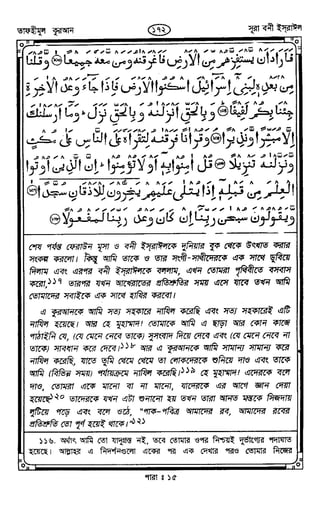 তাফহীমুল কুরআন
১৭২
সূরা বনী ইসরাঈল
فَاَرَادَ اَنْ يَّسْتَفِزَّهُمْ مِّنَ الْاَرْضِ فَاَغْرَقْنٰهُ وَمَنْ مَّعَهٗ جَمِيْعًا ﴿١٠٣﴾ وَّقُلْنَا
مِنْۢ بَعْدِهٖ لِبَنِيْٓ اِسْرَآءِيْلَ اسْكُنُوا الْاَرْضَ فَاِذَا جَآءَ وَعْدُ الْاٰخِرَةِ
جِئْنَا بِكُمْ لَفِيْفًا ﴿١٠٤﴾ وَبِالْحَقِّ اَنْزَلْنٰهُ وَبِالْحَقِّ نَزَلَ ؕ وَمَآ اَرْسَلْنٰكَ
اِلَّا مُبَشِّرًا وَّنَذِيْرًا ﴿١٠٥﴾ وَقُرْاٰنًا فَرَقْنٰهُ لِتَقْرَاَهٗ عَلَى النَّاسِ عَلٰى مُكْثٍ
وَّنَزَّلْنٰهُ تَنْزِيْلًا ﴿١٠٦﴾ قُلْ اٰمِنُوْا بِهٖٓ اَوْ لَا تُؤْمِنُوْا ؕ اِنَّ الَّذِيْنَ اُوْتُوا
الْعِلْمَ مِنْ قَبْلِهٖٓ اِذَا يُتْلٰى عَلَيْهِمْ يَخِرُّوْنَ لِلْاَذْقَانِ سُجَّدًا ﴿١٠٧﴾
وَّيَقُوْلُوْنَ سُبْحٰنَ رَبِّنَآ اِنْ كَانَ وَعْدُ رَبِّنَا لَمَفْعُوْلًا ﴿١٠٨﴾
শেষ পর্যন্ত ফেরাউন মূসা ও বনী ইসরাঈলকে দুনিয়ার বুক থেকে উৎখাত করার
সংকল্প করলো। কিন্তু আমি তাকে ও তার সংগী-সাথীদেরকে এক সাথে ডুবিয়ে
দিলাম এবং এরপর বনী ইসরাঈলকে বললাম, এখন তোমরা পৃথিবীতে বসবাস
করো,১১৭ তারপর যখন আখেরাতের প্রতিশ্রুতির সময় এসে যাবে তখন আমি
তোমাদের সবাইকে এক সাথে হাযির করবো।
এ কুরআনকে আমি সত্য সহকারে নাযিল করেছি এবং সত্য সহকারেই এটি
নাযিল হয়েছে। আর হে মুহাম্মাদ! তোমাকে আমি এ ছাড়া আর কোন কাজে
পাঠাইনি যে, (যে মেনে নেবে তাকে) সুসংবাদ দিয়ে দেবে এবং (যে মেনে নেবে না
তাকে) সাবধান করে দেবে।১১৮ আর এ কুরআনকে আমি সামান্য সামান্য করে
নাযিল করেছি, যাতে তুমি থেমে থেমে তা লোকদেরকে শুনিয়ে দাও এবং তাকে
আমি (বিভিন্ন সময়) পর্যায়ক্রমে নাযিল করেছি।১১৯ হে মুহাম্মাদ! এদেরকে বলে
দাও, তোমরা একে মানো বা না মানো, যাদেরকে এর আগে জ্ঞান দেয়া
হয়েছে১২০ তাদেরকে যখন এটা শুনানো হয় তখন তারা আনত মস্তকে সিজদায়
লুটিয়ে পড়ে এবং বলে ওঠে, "পাক-পবিত্র আমাদের রব, আমাদের রবের
প্রতিশ্রুতি তো পূর্ণ হয়েই থাকে।"১২১
১১৬. অর্থাৎ আমি তো যাদুগ্রস্ত নই, তবে তোমার ওপর নিশ্চয়ই দুর্ভাগ্যের পদাঘাত
হয়েছে। আল্লাহর এ নিদর্শনগুলো একের পর এক দেখার পরও তোমার নিজের
পারা : ১৫